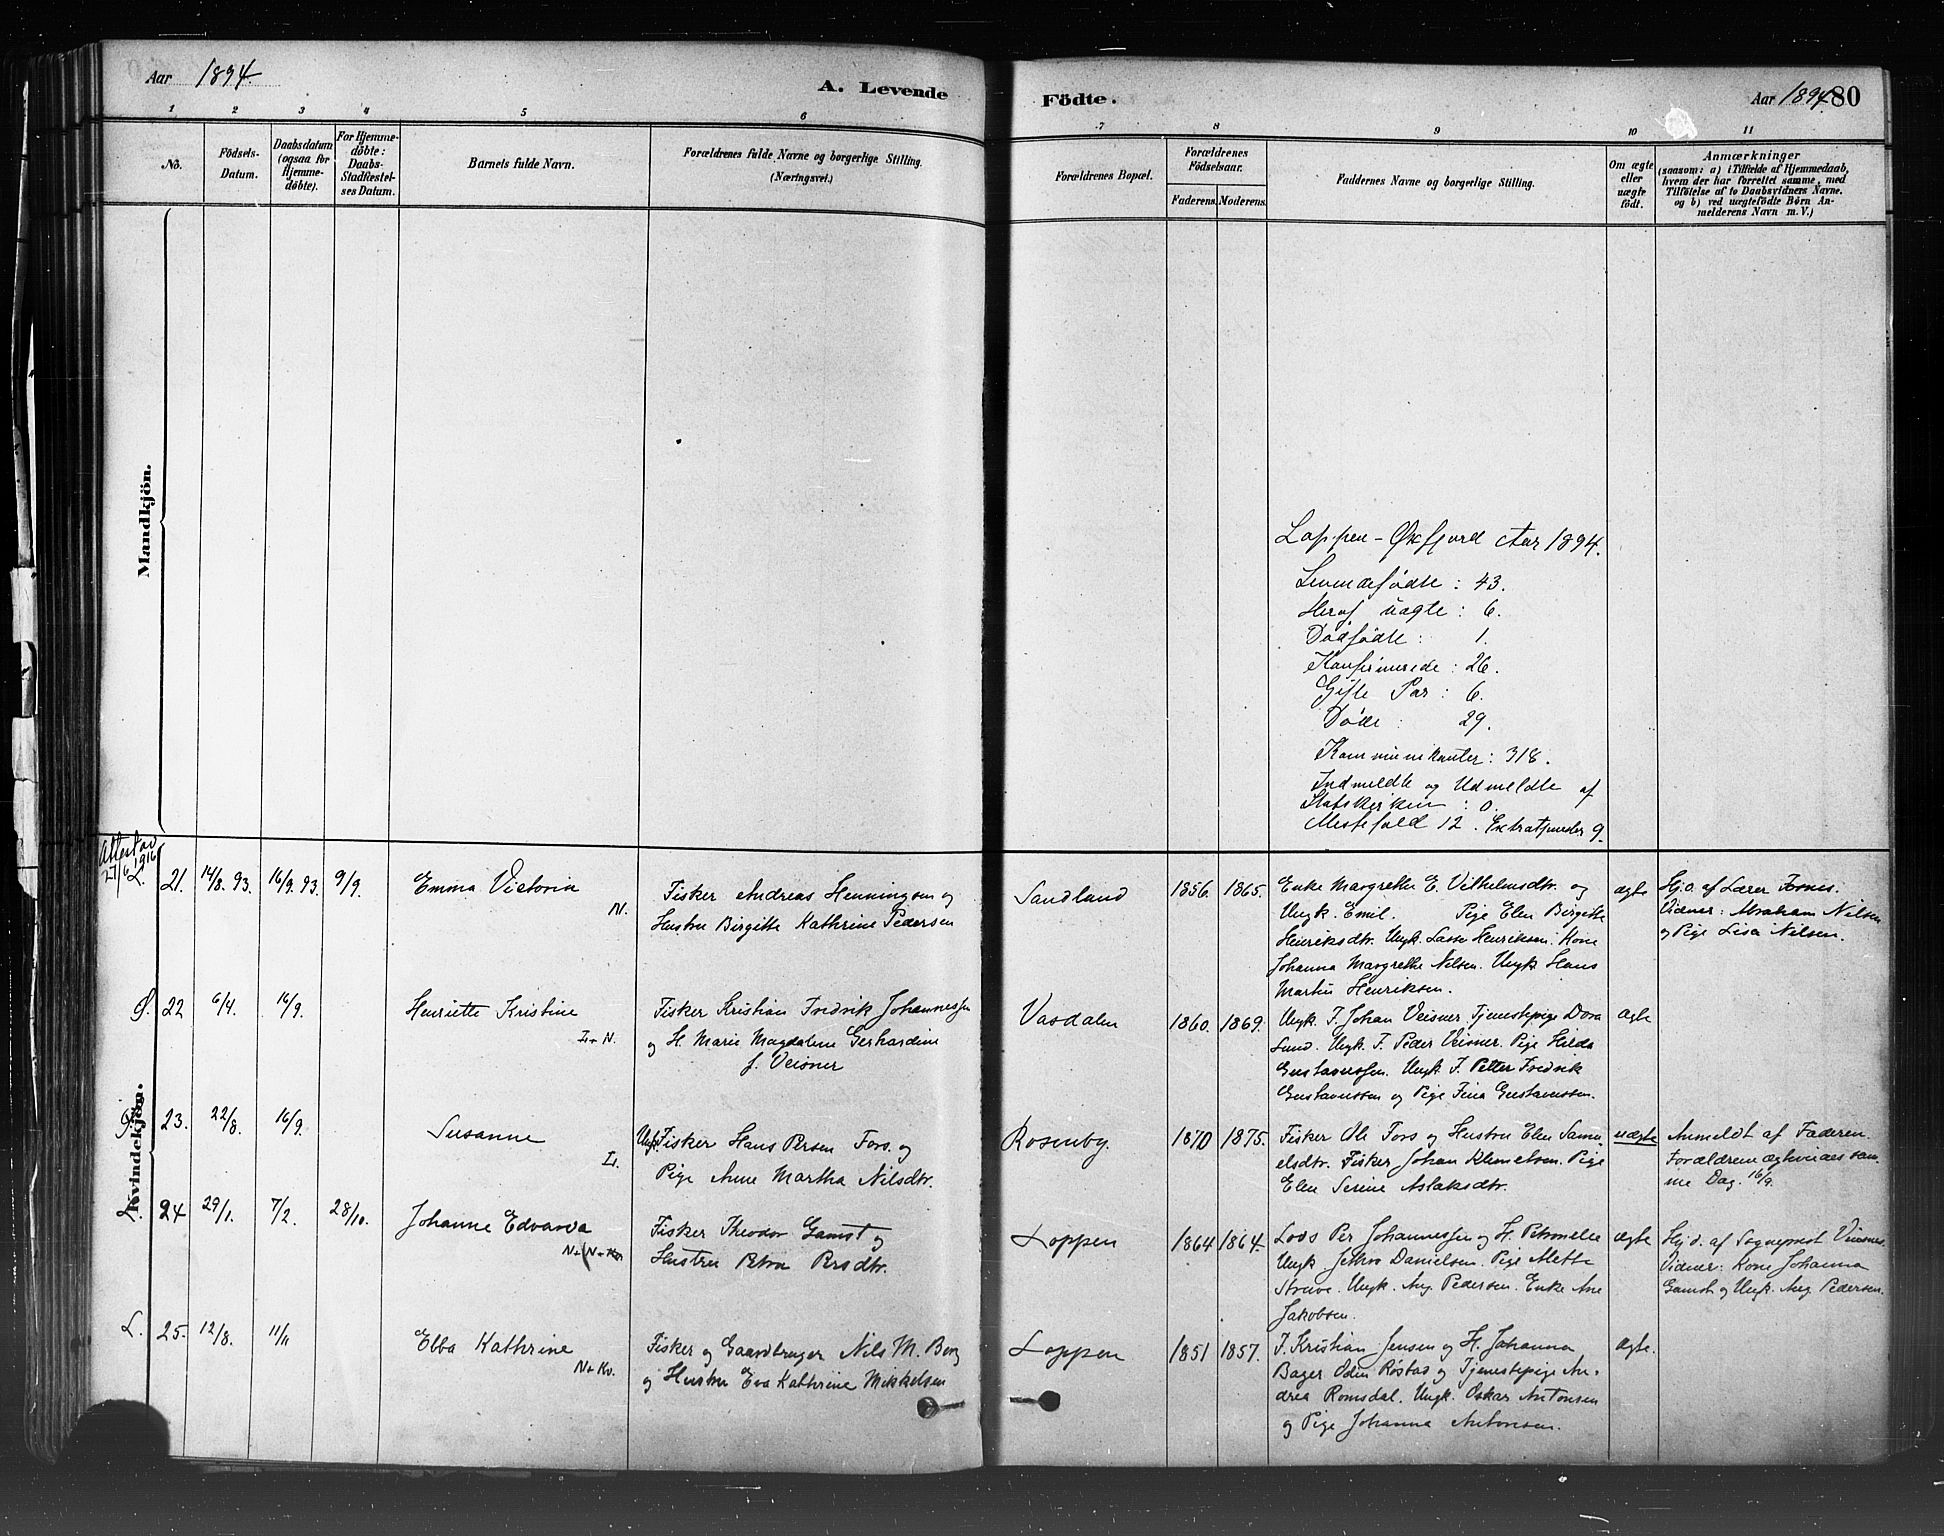 Aar 1894.
A. Levende
Födte.
Aar 1894.
80
1 2 3 4 5 6 7 8 9 10 11
No.
Födsels-
Datum.
Daabsdatum
(ogsaa for
Hjemme-
døbte).
For Hjemme-
døbte:
Daabs-
Stadfæstel-
ses Datum.
Barnets fulde Navn.
Forældrenes fulde Navne og borgerlige Stilling.
(Næringsvei.)
Forældrenes Bopæl.
Forældrenes
Födselsaar.
Faderens. Moderens.
Faddernes Navne og borgerlige Stilling.
Om ægte
eller
uægte
födt.
Anmærkninger
(saasom: a) i Tilfælde af Hjemmedaab,
hvem der har forrettet samme, med
Tilføielse af to Daabsvidners Navne.
og b) ved uægtefödte Börn An-
melderens Navn m. V.)
Mandkjön.
Loppen - Øxfjord Aar 1894.
Levendefødte : 43.
Heraf uægte : 6.
Dødfødte : 1.
Konfirmerede : 26.
Gifte Par : 6.
Døde : 29.
Kommunikanter : 318.
Indmeldte og Udmeldte af
Statskirken : 0.
Messefald 12. Extratjenester 9.
Kvindekjön.
Attest av
27/6 1916
L. 21. 14/8 93. 16/9 93. 9/9.
Emma Victoria
N.
Fisker Andreas Henningsen og
Hustru Birgitte Kathrine Pedersen
Sandland
1856. 1865.
Enke Margrethe E. Vilhelmsdtr. og
Ungk. Emil. Pige Elen Birgitte
Henriksdtr. Ungk. Lasse Henriksen. Kone
Johanna Margrethe Nilsen. Ungk. Hans
Martin Henriksen.
ægte
Hj.d. af Lærer Fornes.
Vidner: Abraham Nilsen
og Pige Lisa Nilsen.
Ø. 22 6/4. 16/9.
Henriette Kristine
L + N.
Fisker Kristian Fredrik Johannessen
og H. Marie Magdalene Gerhardine
f. Veisner
Vasdalen
1860. 1869.
Ungk. F. Johan Veisner. Tjenestepige Dora
Lund. Ungk. F. Peder Veisner. Pige Hilda
Gustavessen. Ungk. F. Petter Fredrik
Gustavussen og Pige Fina Gustavussen.
ægte
Ø. 23. 22/8. 16/9.
Susanne
L.
Ungk. Fisker Hans Persen Fors. og
Pige Anne Martha Nilsdtr.
Rosenby.
1870 1875.
Fisker Ole Fors og Hustru Elen Samu-
elsdtr. Fisker Johan Klemetsen. Pige
Elen Serine Aslaksdtr.
uægte
Anmeldt af Faderen.
Forældrene ægtevies sam-
me Dag. 16/9.
L. 24 29/1. 7/2. 28/10.
Johanne Edvarda
N + (N + Kv.
Fisker Theodor Gamst og
Hustru Petra Persdtr.
Loppen
1864 1864.
Lods Per Johannessen og H. Petronelle
Ungk Jethro Danielsen. Pige Alette
Struve. Ungk. Aug. Pedersen. Enke Ane
Jakobsen.
ægte
Hj.d. af Sogneprest Veisnes.
Vidner: Kone Johanna
Gamst og Ungk. Aug. Pedersen.
L. 25. 12/8. 11/11
Ebba Kathrine
N + Kv.
Fisker og Gaardbruger Nils M. Berg
og Hustru Eva Kathrine Mikkelsen
Loppen
1851 1857.
F. Kristian Jensen og H. Johanna
Bager Odin Røstad og Tjenestepige An-
drea Romsdal. Ungk. Oskar Antonsen
og Pige Johanna Antonsen.
ægte.